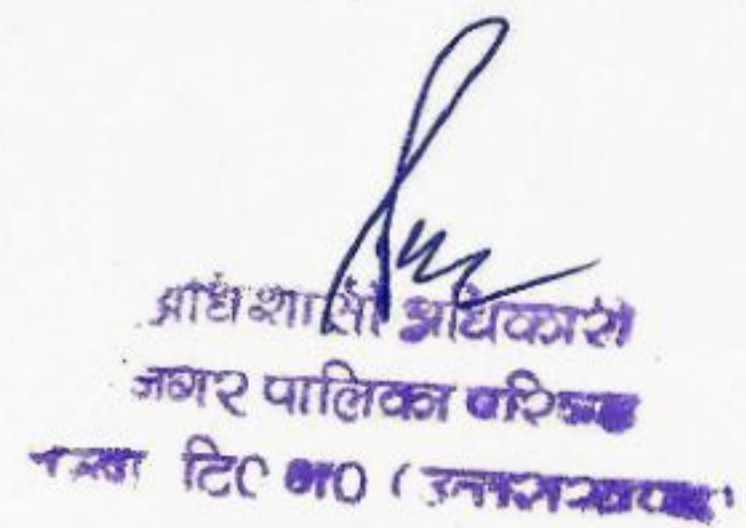 अधिशासी अधिकारी
नगर पालिका परिषद
टि० ग० (उत्तराखण्ड)